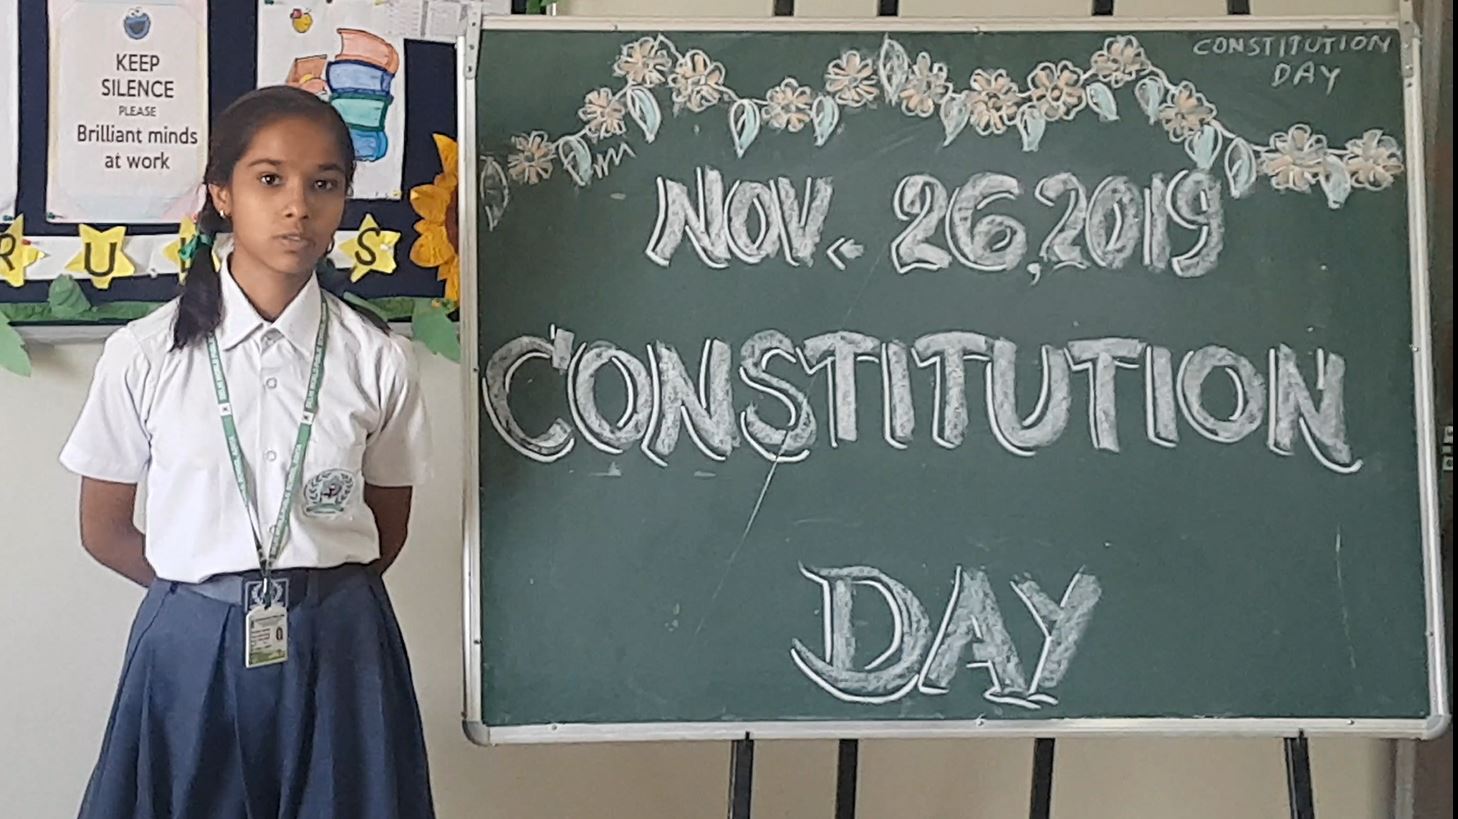 KEEP
SILENCE
PLEASE
Brilliant minds
at work
R U S
CONSTITUTION
DAY
NOV. 26, 2019
CONSTITUTION
DAY